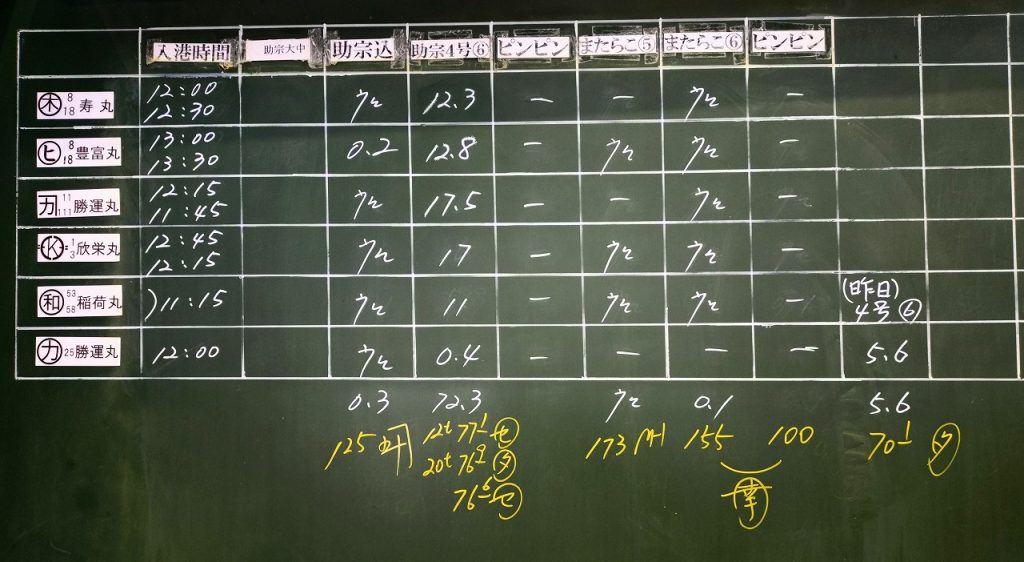 入港時間 助宗大中 助宗込 助宗4号⑥ ピンピン またらこ⑤ またらこ⑥ ピンピン
木 8 18 寿丸 12:00 12:30 ウ 12.3 ー ー ウ ー
ヒ 8 18 豊富丸 13:00 13:30 0.2 12.8 ー ウ ウ ー
カ 11 111 勝運丸 12:15 11:45 ウ 17.5 ー ー ウ ー
K 1 3 欣栄丸 12:45 12:15 ウ 17 ー ウ ウ ー
和 53 58 稲荷丸 )11:15 ウ 11 ー ウ ウ ー (昨日) 4号⑥
カ 25 勝運丸 12:00 ウ 0.4 ー ー ー ー 5.6
0.3 72.3 ウ 0.1 5.6
125 12t 771 173 155 100 701
20t 769
766